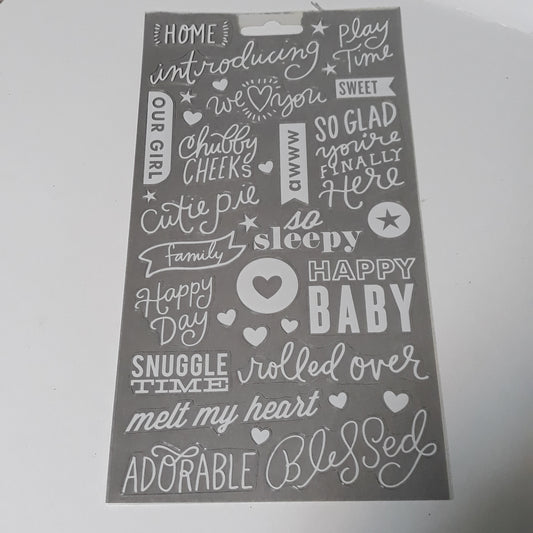 HOME
Play
Time
introducing
we you
SWEET
OUR GIRL
Chubby
CHEEKS
awww
SO GLAD
you're
FINALLY
Here
cutie pie
so
sleepy
family
HAPPY
BABY
Happy
Day
SNUGGLE
TIME
rolled over
melt my heart
ADORABLE
Blessed